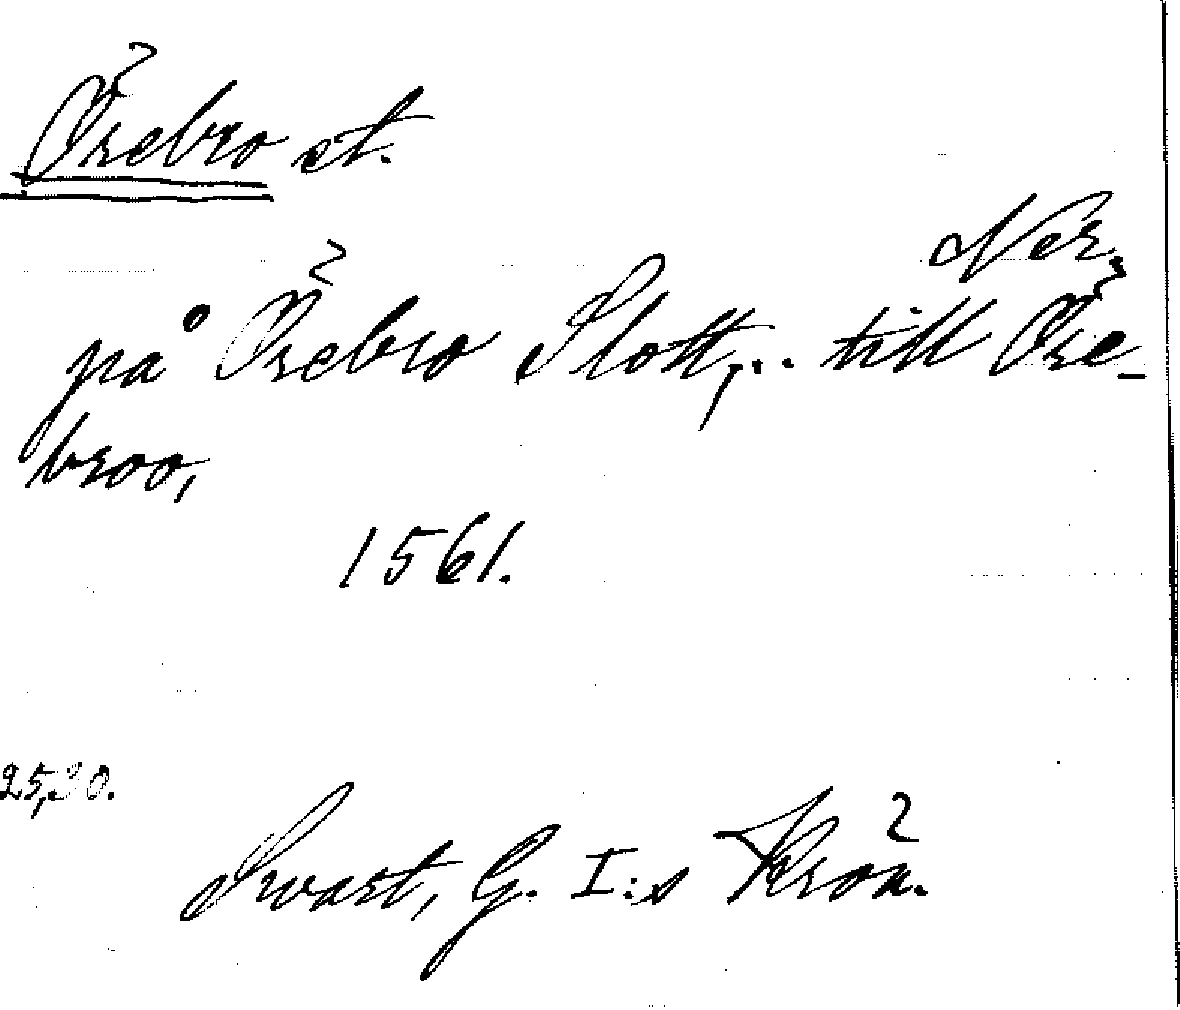 Örebro st.
Ner.
på Örebro Slott,.. till Öre-
broo,
1561.
25,30.
Swart, G. I:s Krön.